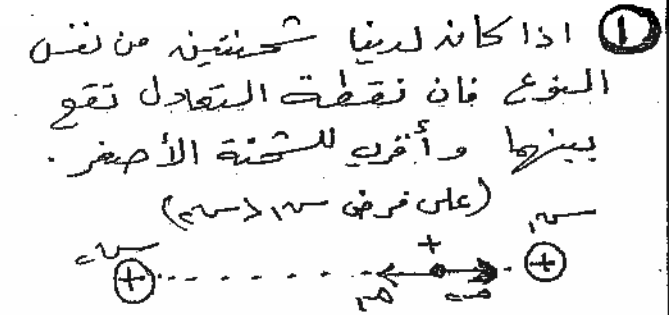 ١ اذا كان لدينا شحنتين من نفس
النوع فان نقطة التعادل تقع
بينهما وأقرب للشحنة الأصغر.
(على فرض س١ > س٢)
س٢ + س١
+ +
م١ م٢